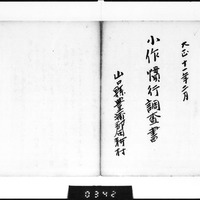 大正十一年二月
小作慣行調査書
山口縣豊浦郡岡枝村
0342